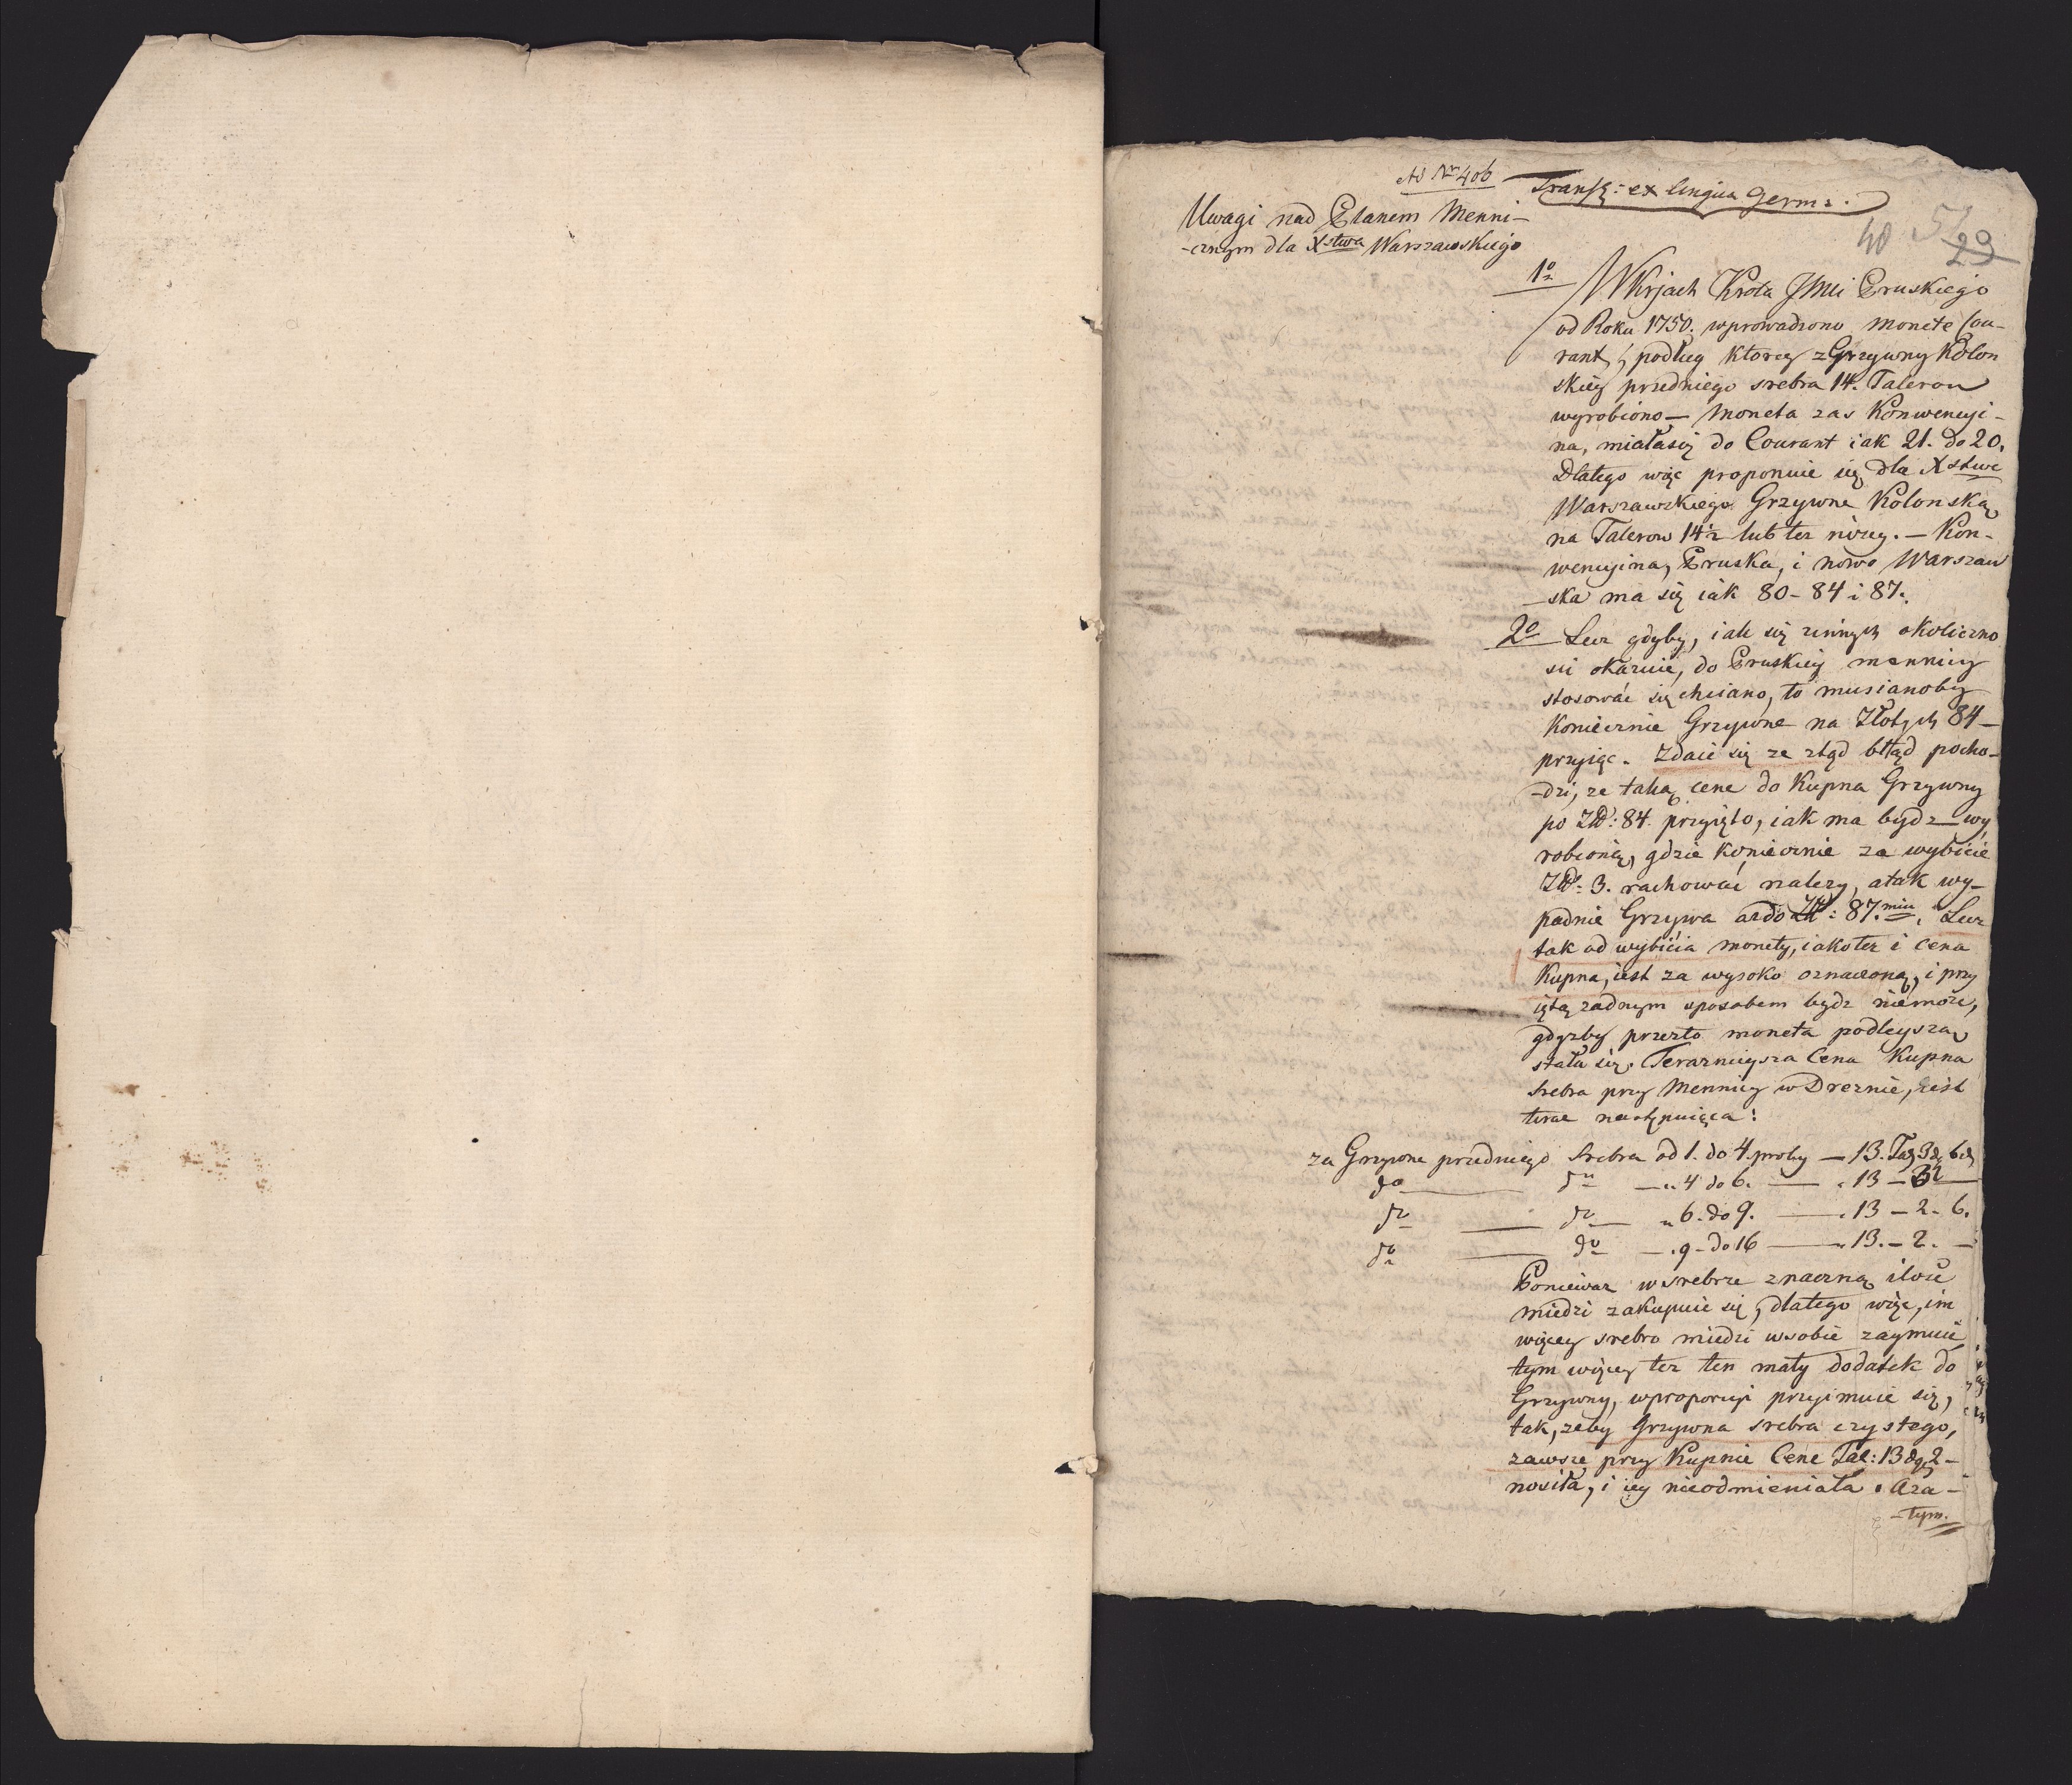 Ad Nr 406
Transl: ex lingua Germ:
Uwagi nad Planem Menni-
-cznym dla Xstwa Warszawskiego
40 51
29
1o W Krjach Krola JMci Pruskiego
od Roku 1750. wprowadzono monete Cou-
rant, podług ktorey z Grzywny Kolon
skiey przedniego srebra 14. Talerow
wyrobiono — Moneta zas Konwencyi-
na, miała się do Courant iak 21. do 20.
Dlatego więc proponuie się dla Xstwa
Warszawskiego Grzywne Kolonską
na Talerow 14½ lub tez nizey. — Kon-
wencyina, Pruska, i nowo Warszaw
-ska ma się iak 80 - 84 i 87.
2o Lecz gdyby, iak się z innych okoliczno
sci okazuie, do Pruskiey mennicy
stosować się chciano, to musianoby
koniecznie Grzywne na Złotych 84 —
przyiąc. Zdaie się ze ztąd błąd pocho-
-dzi, ze taką cene do Kupna Grzywny
po Zł: 84. przyięto, iak ma bydz wy
robioną, gdzie koniecznie za wybicie
Zł: 3. rachować nalezy, a tak wy-
padnie Grzywa az do Zł: 87. Lecz
tak od wybicia monety, iako tez i Cena
Kupna, iest za wysoko oznaczona, i przy
iętą zadnym sposobem bydz niemoze,
gdyzby przezto moneta podleyszą
stała się. Teraznieysza Cena Kupna
Srebra przy Mennicy w Dreznie, iest
teraz następuiąca:
za Grzywne przedniego Srebra od 1. do 4. proby — 13. Tal 3 g 6 d
do — do — " 4 do 6. — " 13 — 3
do — do — " 6. do 9. — " 13 — 2 - 6.
do — do — " 9 - do 16 — " 13. — 2. —
Poniewaz w srebrze znaczną ilosć
miedzi zakupuie się, dlatego więc, im
więcey srebro miedzi w sobie zaymuie
tym więcey tez ten mały dodatek do
Grzywny, w proporcyi przyimuie się,
tak, zeby Grzywna srebra czystego,
zawsze przy Kupnie Cene Tal: 13 dg 2 -
nosiła, i iey nieodmieniała. Aza -
- tym.